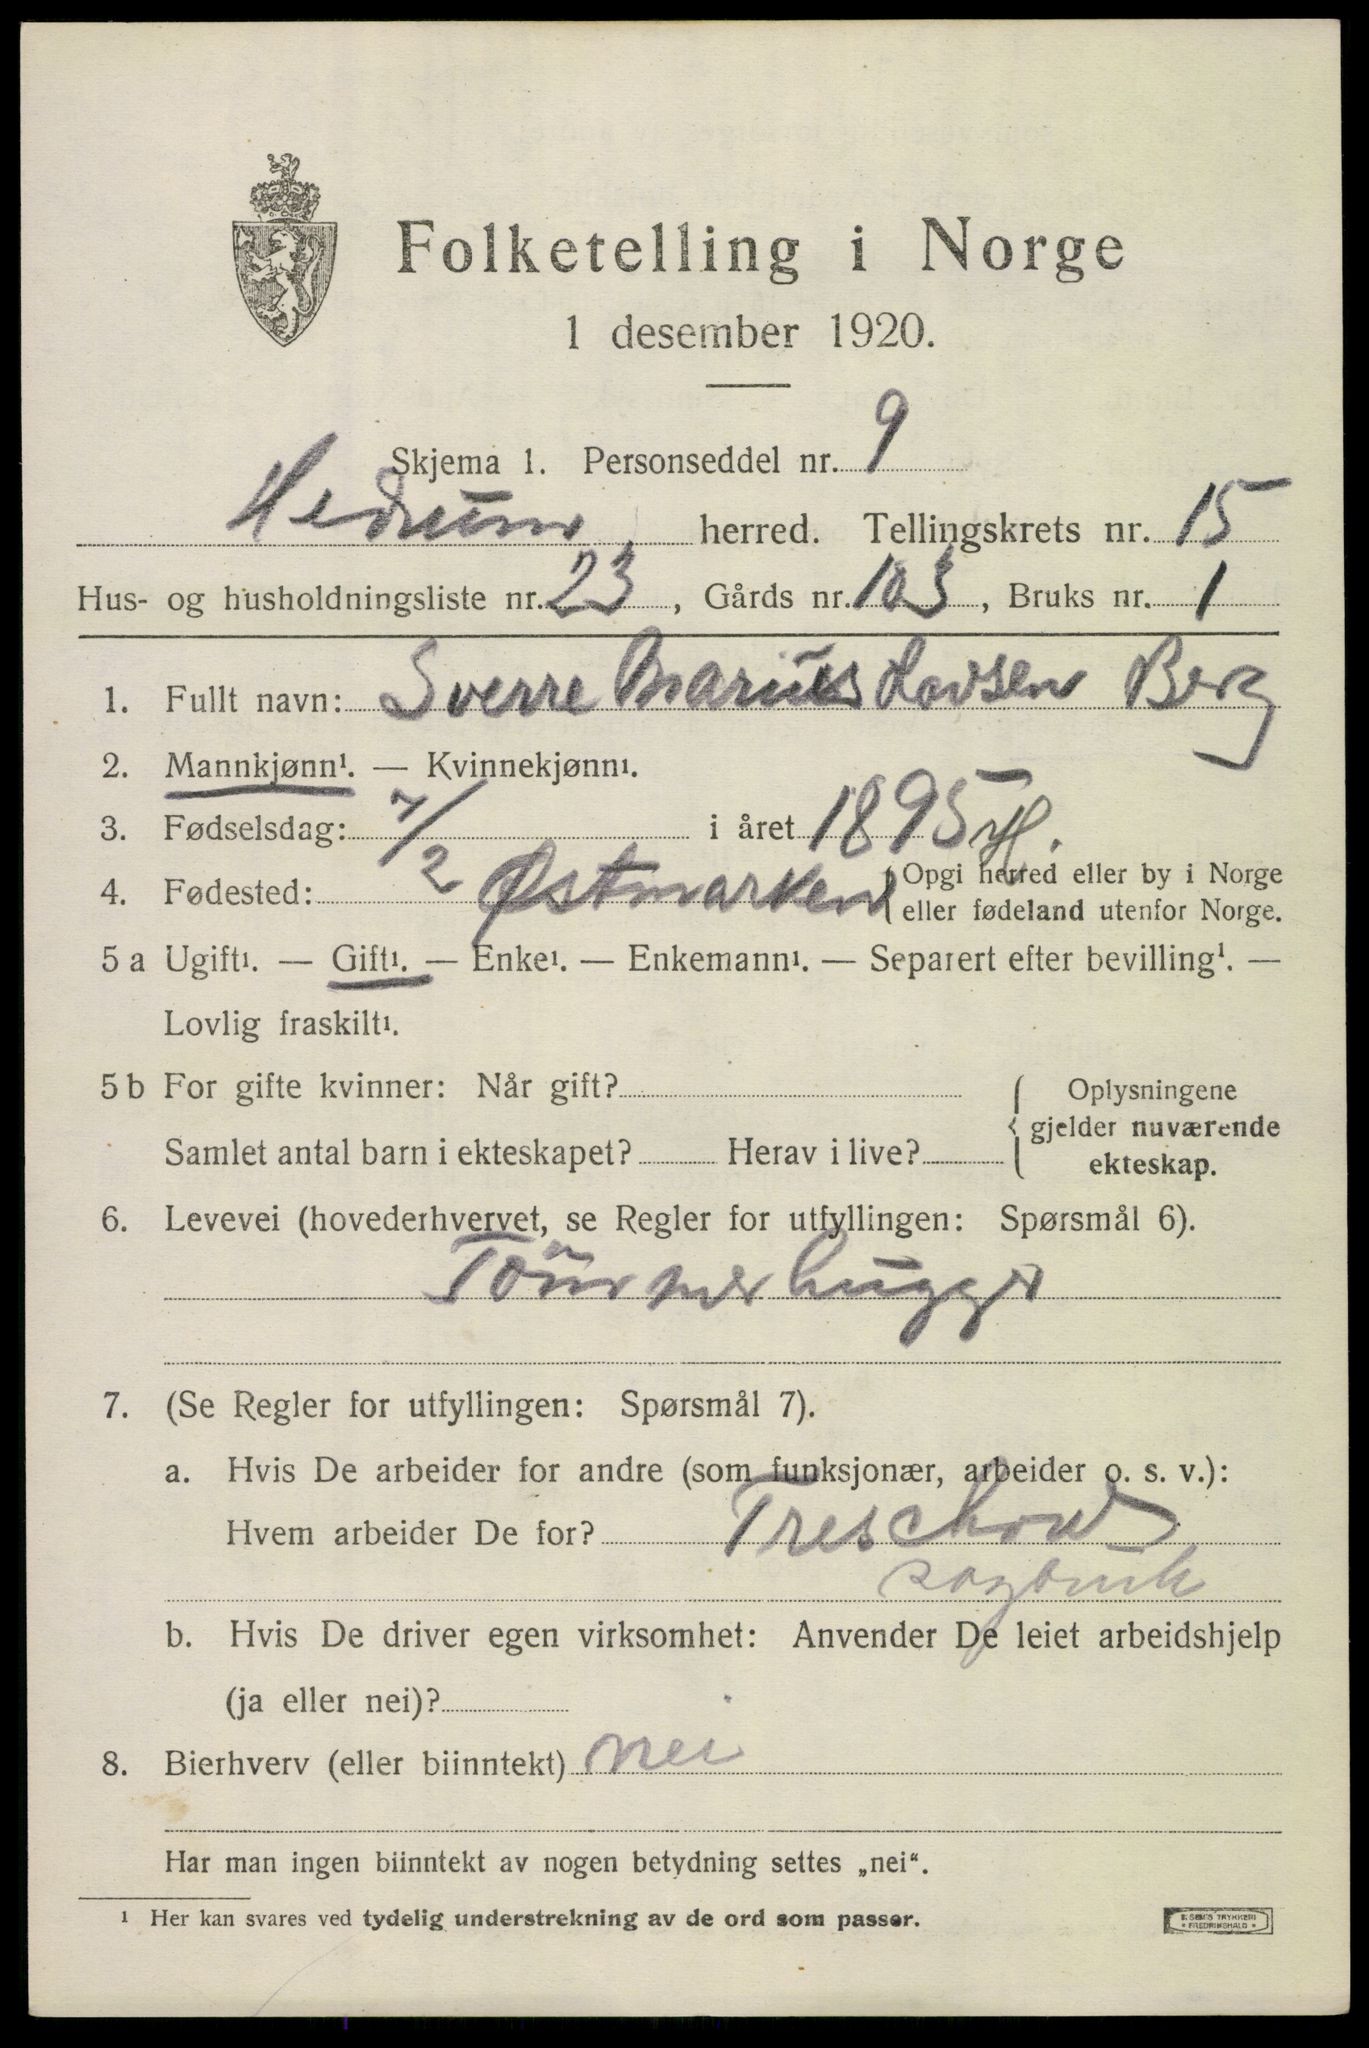 Folketelling i Norge
1 desember 1920.
Skjema 1. Personseddel nr. 9
Hedrum herred. Tellingskrets nr. 15
Hus- og husholdningsliste nr. 23, Gårds nr. 103, Bruks nr. 1
1. Fullt navn: Sverre Marius Lovsen Berg
2. Mannkjønn¹. — Kvinnekjønn¹.
3. Fødselsdag: 7/2 i året 1895
4. Fødested: Østmarken H. {Opgi herred eller by i Norge
eller fødeland utenfor Norge.
5a Ugift¹. — Gift¹. — Enke¹. — Enkemann¹. — Separert efter bevilling¹. —
Lovlig fraskilt¹.
5b For gifte kvinner: Når gift?
Samlet antal barn i ekteskapet? Herav i live?
{Oplysningene
gjelder nuværende
ekteskap.
6. Levevei (hovederhvervet, se Regler for utfyllingen: Spørsmål 6).
Tømmerhugger
7. (Se Regler for utfyllingen: Spørsmål 7).
a. Hvis De arbeider for andre (som funksjonær, arbeider o. s. v.):
Hvem arbeider De for? Treschow
sagbruk
b. Hvis De driver egen virksomhet: Anvender De leiet arbeidshjelp
(ja eller nei)?
8. Bierhverv (eller biinntekt) nei
Har man ingen biinntekt av nogen betydning settes „nei“.
¹ Her kan svares ved tydelig understrekning av de ord som passer.
E. SEM'S TRYKKERI
* FREDRIKSHALD *